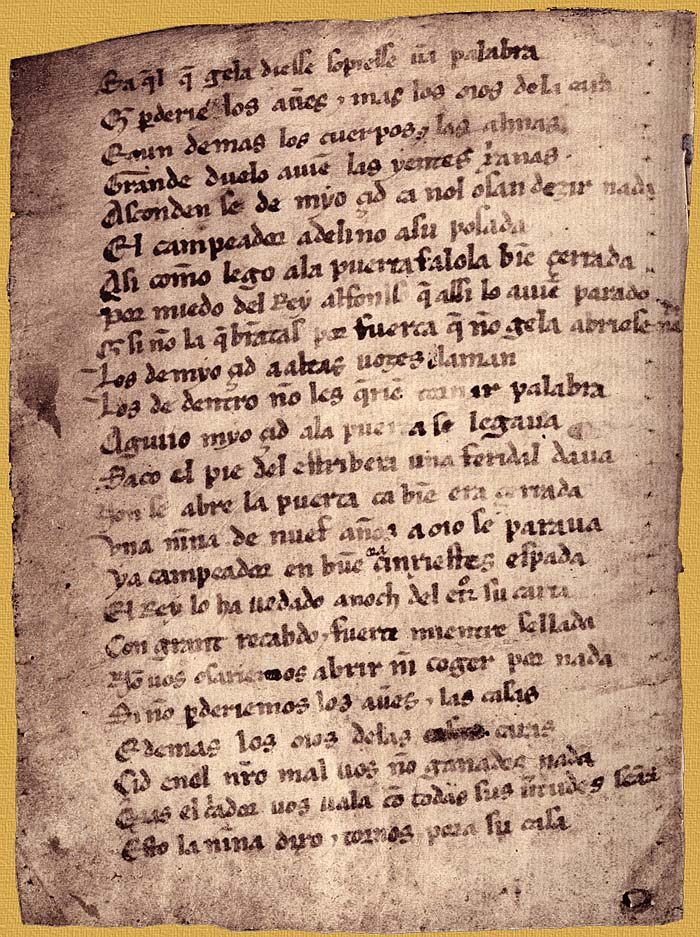 Ea q̃l q̃ gela diesse sopiesse ũa palabra
Q̃ ꝑderie los aũes ⁊ mas los oios dela cara
E aun demas los cuerpos ⁊ las almas
Grande duelo auiẽ las yentes xp̃anas
Asconden se de myo çid ca nol osan dezir nada
El campeador adelino asu posada
Asi com̃o lego ala puerta falola biẽ çerrada
Por miedo del Rey alfonsso q̃ assi lo auiẽ parado
Q̃ si ño la q̃brãtas por fuerça q̃ ño gela abriese
Los de myo çid a altas uozes laman
Los de dentro ño les q̃riẽ tornar palabra
Aguiio myo çid ala puerta se legaua
Saco el pie del estribera una feridal daua
Non se abre la puerta ca biẽ era çerrada
Vna niña de nuef años a oio se paraua
Ya campeador en buẽ ora çinxiestes espada
El Rey lo ha uedado anoch del et̃ro su carta
Con grant recabdo ⁊ fuerte mientre sellada
Nõ uos osariemos abrir nĩ coger por nada
Si ño ꝑderiemos los aũes ⁊ las casas
E demas los oios delas caras
Çid enel nr̃o mal uos ño ganades nada
Mas el c̃ador uos uala cõ todas sus ũtudes sc̃as
Esto la niña dixo ⁊ tornos pora su casa